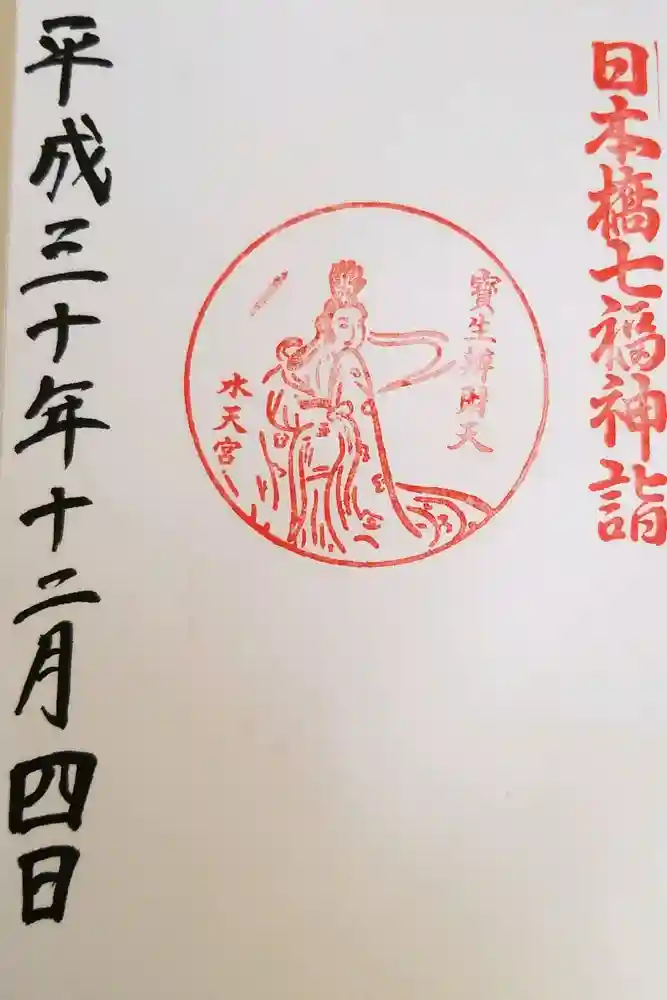 日本橋七福神詣
寶生辨財天
水天宮
平成三十年十二月四日